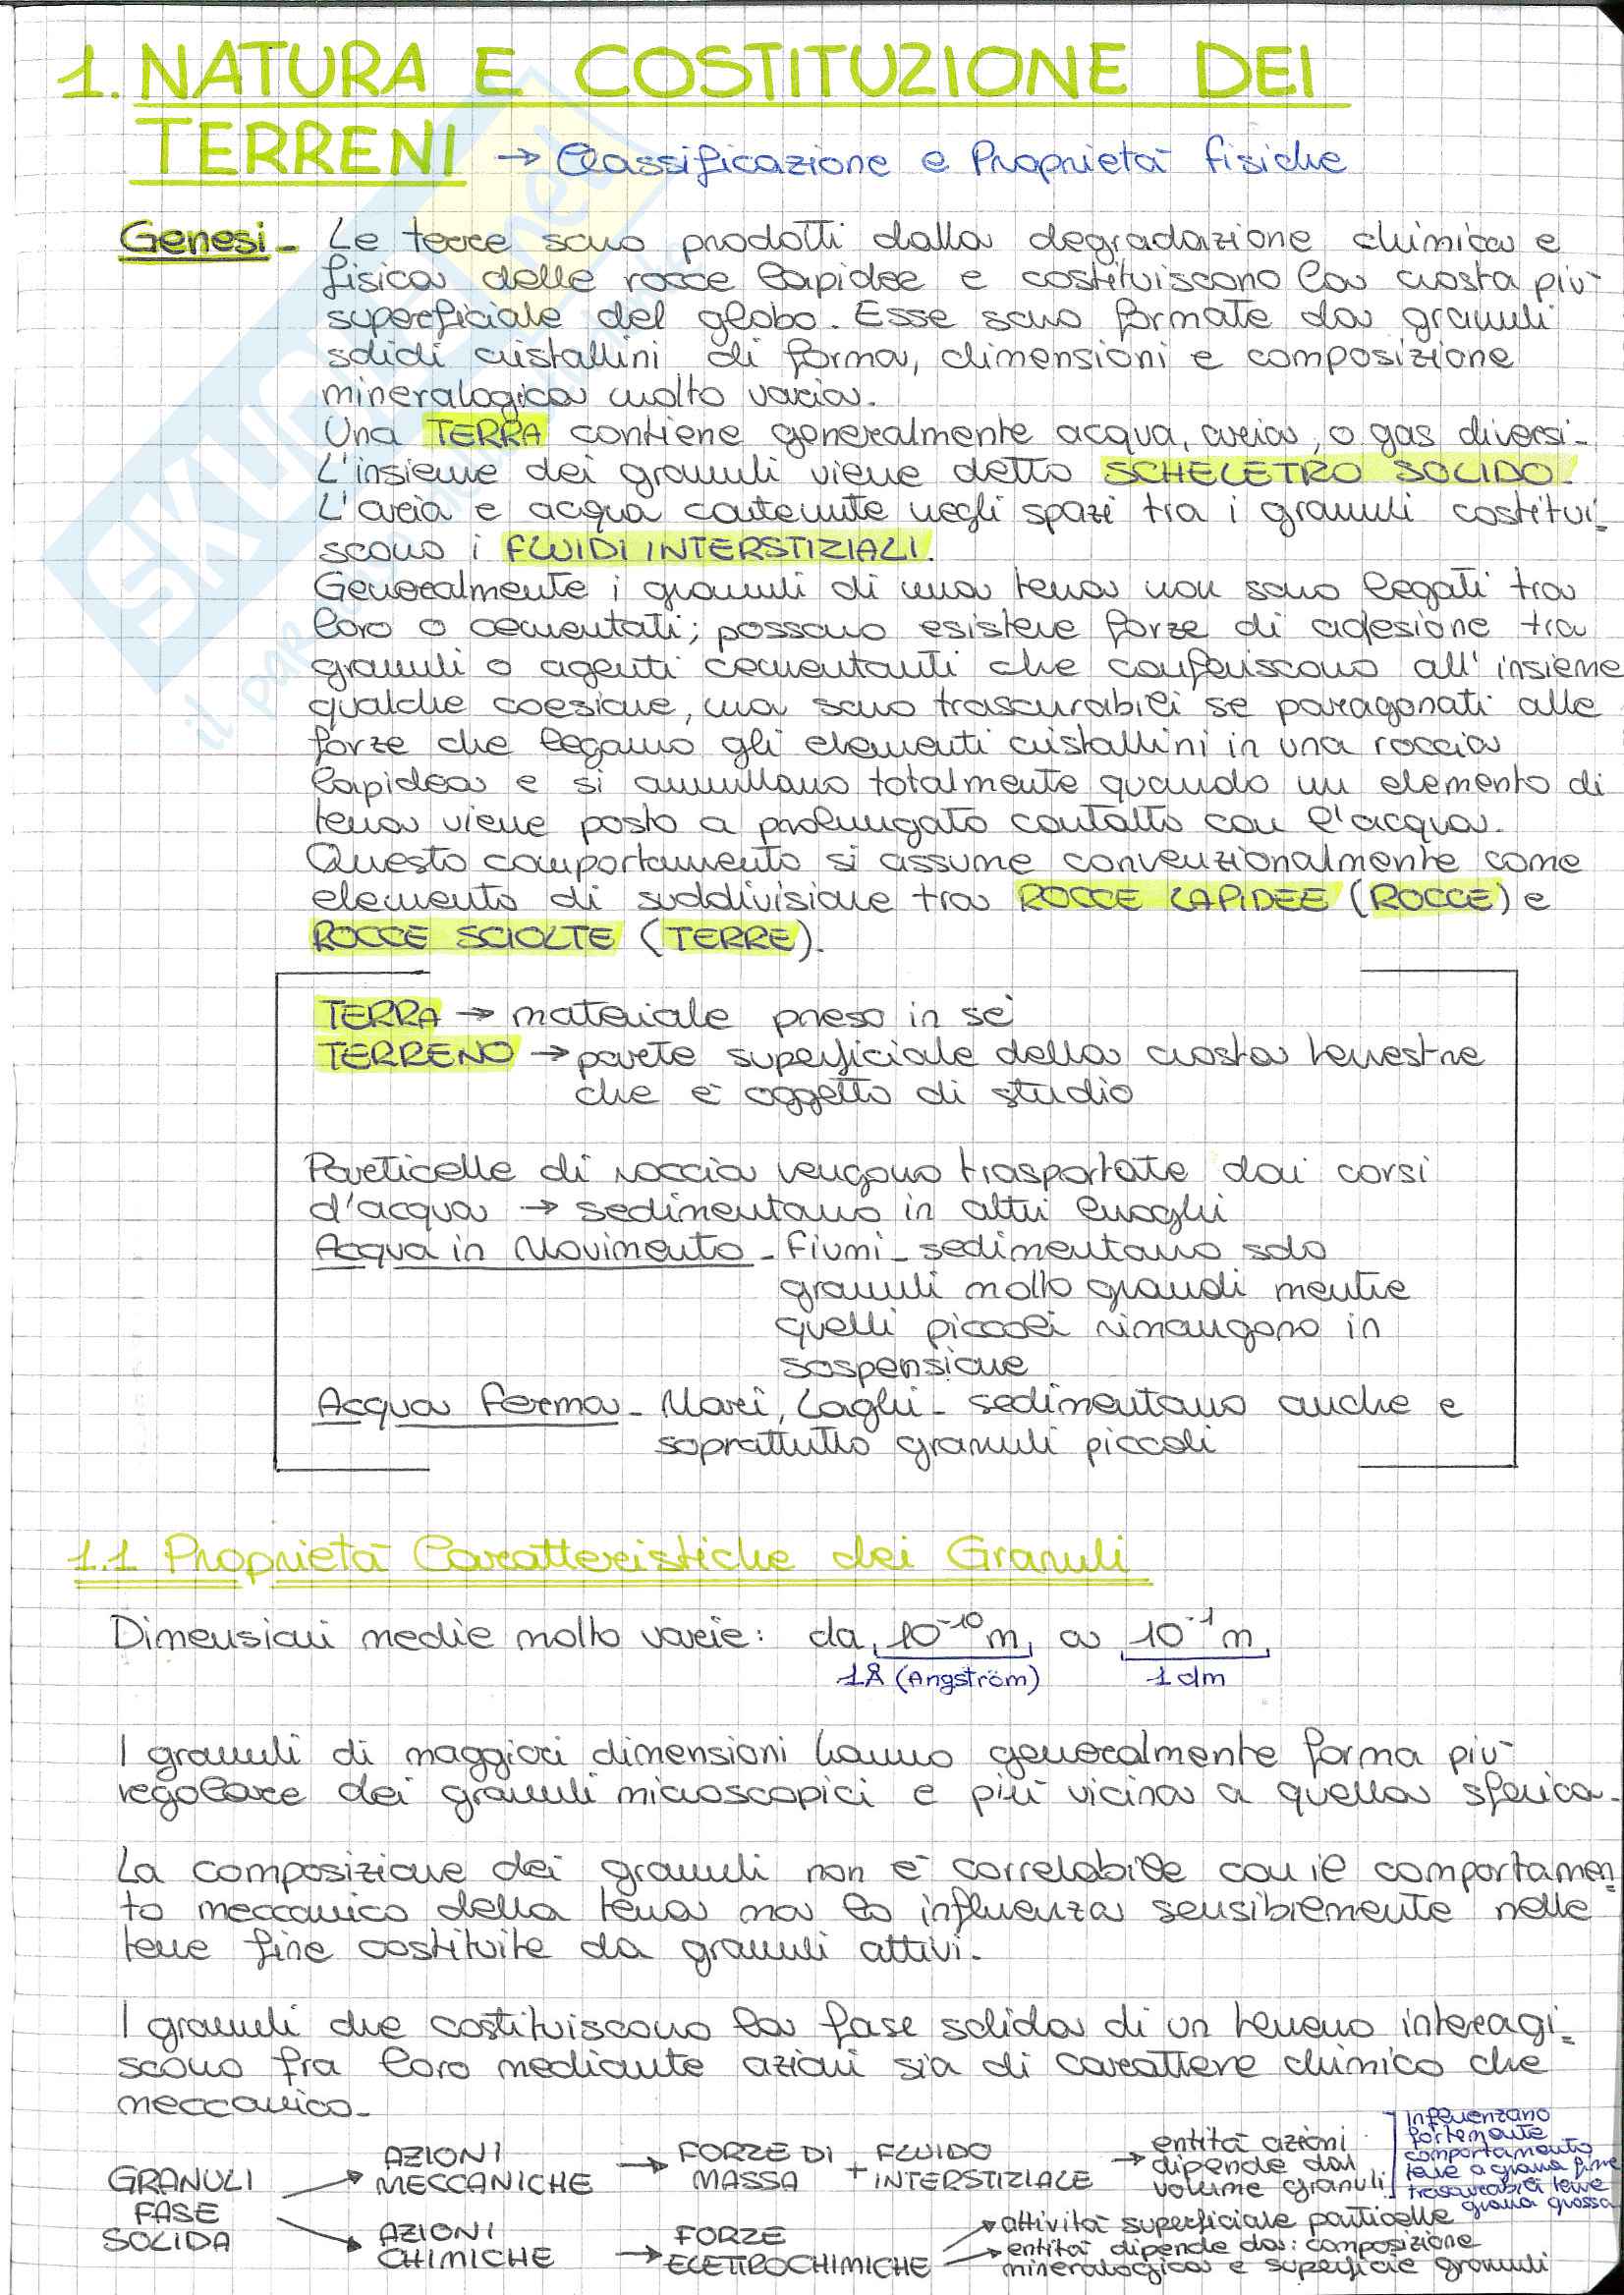 1. NATURA E COSTITUZIONE DEI
TERRENI → Classificazione e Proprietà fisiche
Genesi - Le terre sono prodotti dalla degradazione chimica e
fisica delle rocce lapidee e costituiscono la crosta più
superficiale del globo. Esse sono formate da granuli
solidi cristallini di forma, dimensioni e composizione
mineralogica molto varia.
Una TERRA contiene generalmente acqua, aria, o gas diversi.
L'insieme dei granuli viene detto SCHELETRO SOLIDO.
L'aria e acqua contenute negli spazi tra i granuli costitui=
scono i FLUIDI INTERSTIZIALI.
Generalmente i granuli di una terra non sono legati tra
loro o cementati; possono esistere forze di adesione tra
granuli o agenti cementanti che conferiscono all'insieme
qualche coesione, ma sono trascurabili se paragonati alle
forze che legano gli elementi cristallini in una roccia
lapidea e si annullano totalmente quando un elemento di
terra viene posto a prolungato contatto con l'acqua.
Questo comportamento si assume convenzionalmente come
elemento di suddivisione tra ROCCE LAPIDEE (ROCCE) e
ROCCE SCIOLTE (TERRE).
TERRA → materiale preso in sé
TERRENO → parte superficiale della crosta terrestre
che è oggetto di studio
Particelle di roccia vengono trasportate dai corsi
d'acqua → sedimentano in altri luoghi
Acqua in Movimento - Fiumi - sedimentano solo
granuli molto grandi mentre
quelli piccoli rimangono in
sospensione
Acqua ferma - Mari, Laghi - sedimentano anche e
soprattutto granuli piccoli
1.1 Proprietà Caratteristiche dei Granuli
Dimensioni medie molto varie: da 10⁻¹⁰ m a 10⁻¹ m
1Å (Angström) 1 dm
I granuli di maggiori dimensioni hanno generalmente forma più
regolare dei granuli microscopici e più vicina a quella sferica.
La composizione dei granuli non è correlabile con il comportamen=
to meccanico della terra ma lo influenza sensibilmente nelle
terre fine costituite da granuli attivi.
I granuli che costituiscono la fase solida di un terreno interagi=
scono fra loro mediante azioni sia di carattere chimico che
meccanico.
GRANULI FASE SOLIDA
AZIONI MECCANICHE → FORZE DI MASSA + FLUIDO INTERSTIZIALE → entità azioni dipende dal volume granuli
influenzano
fortemente
comportamento
terre a grana fine
trascurabili terre
grana grossa
AZIONI CHIMICHE → FORZE ELETTROCHIMICHE
attività superficiale particelle
entità dipende da: composizione
mineralogica e superficie granuli